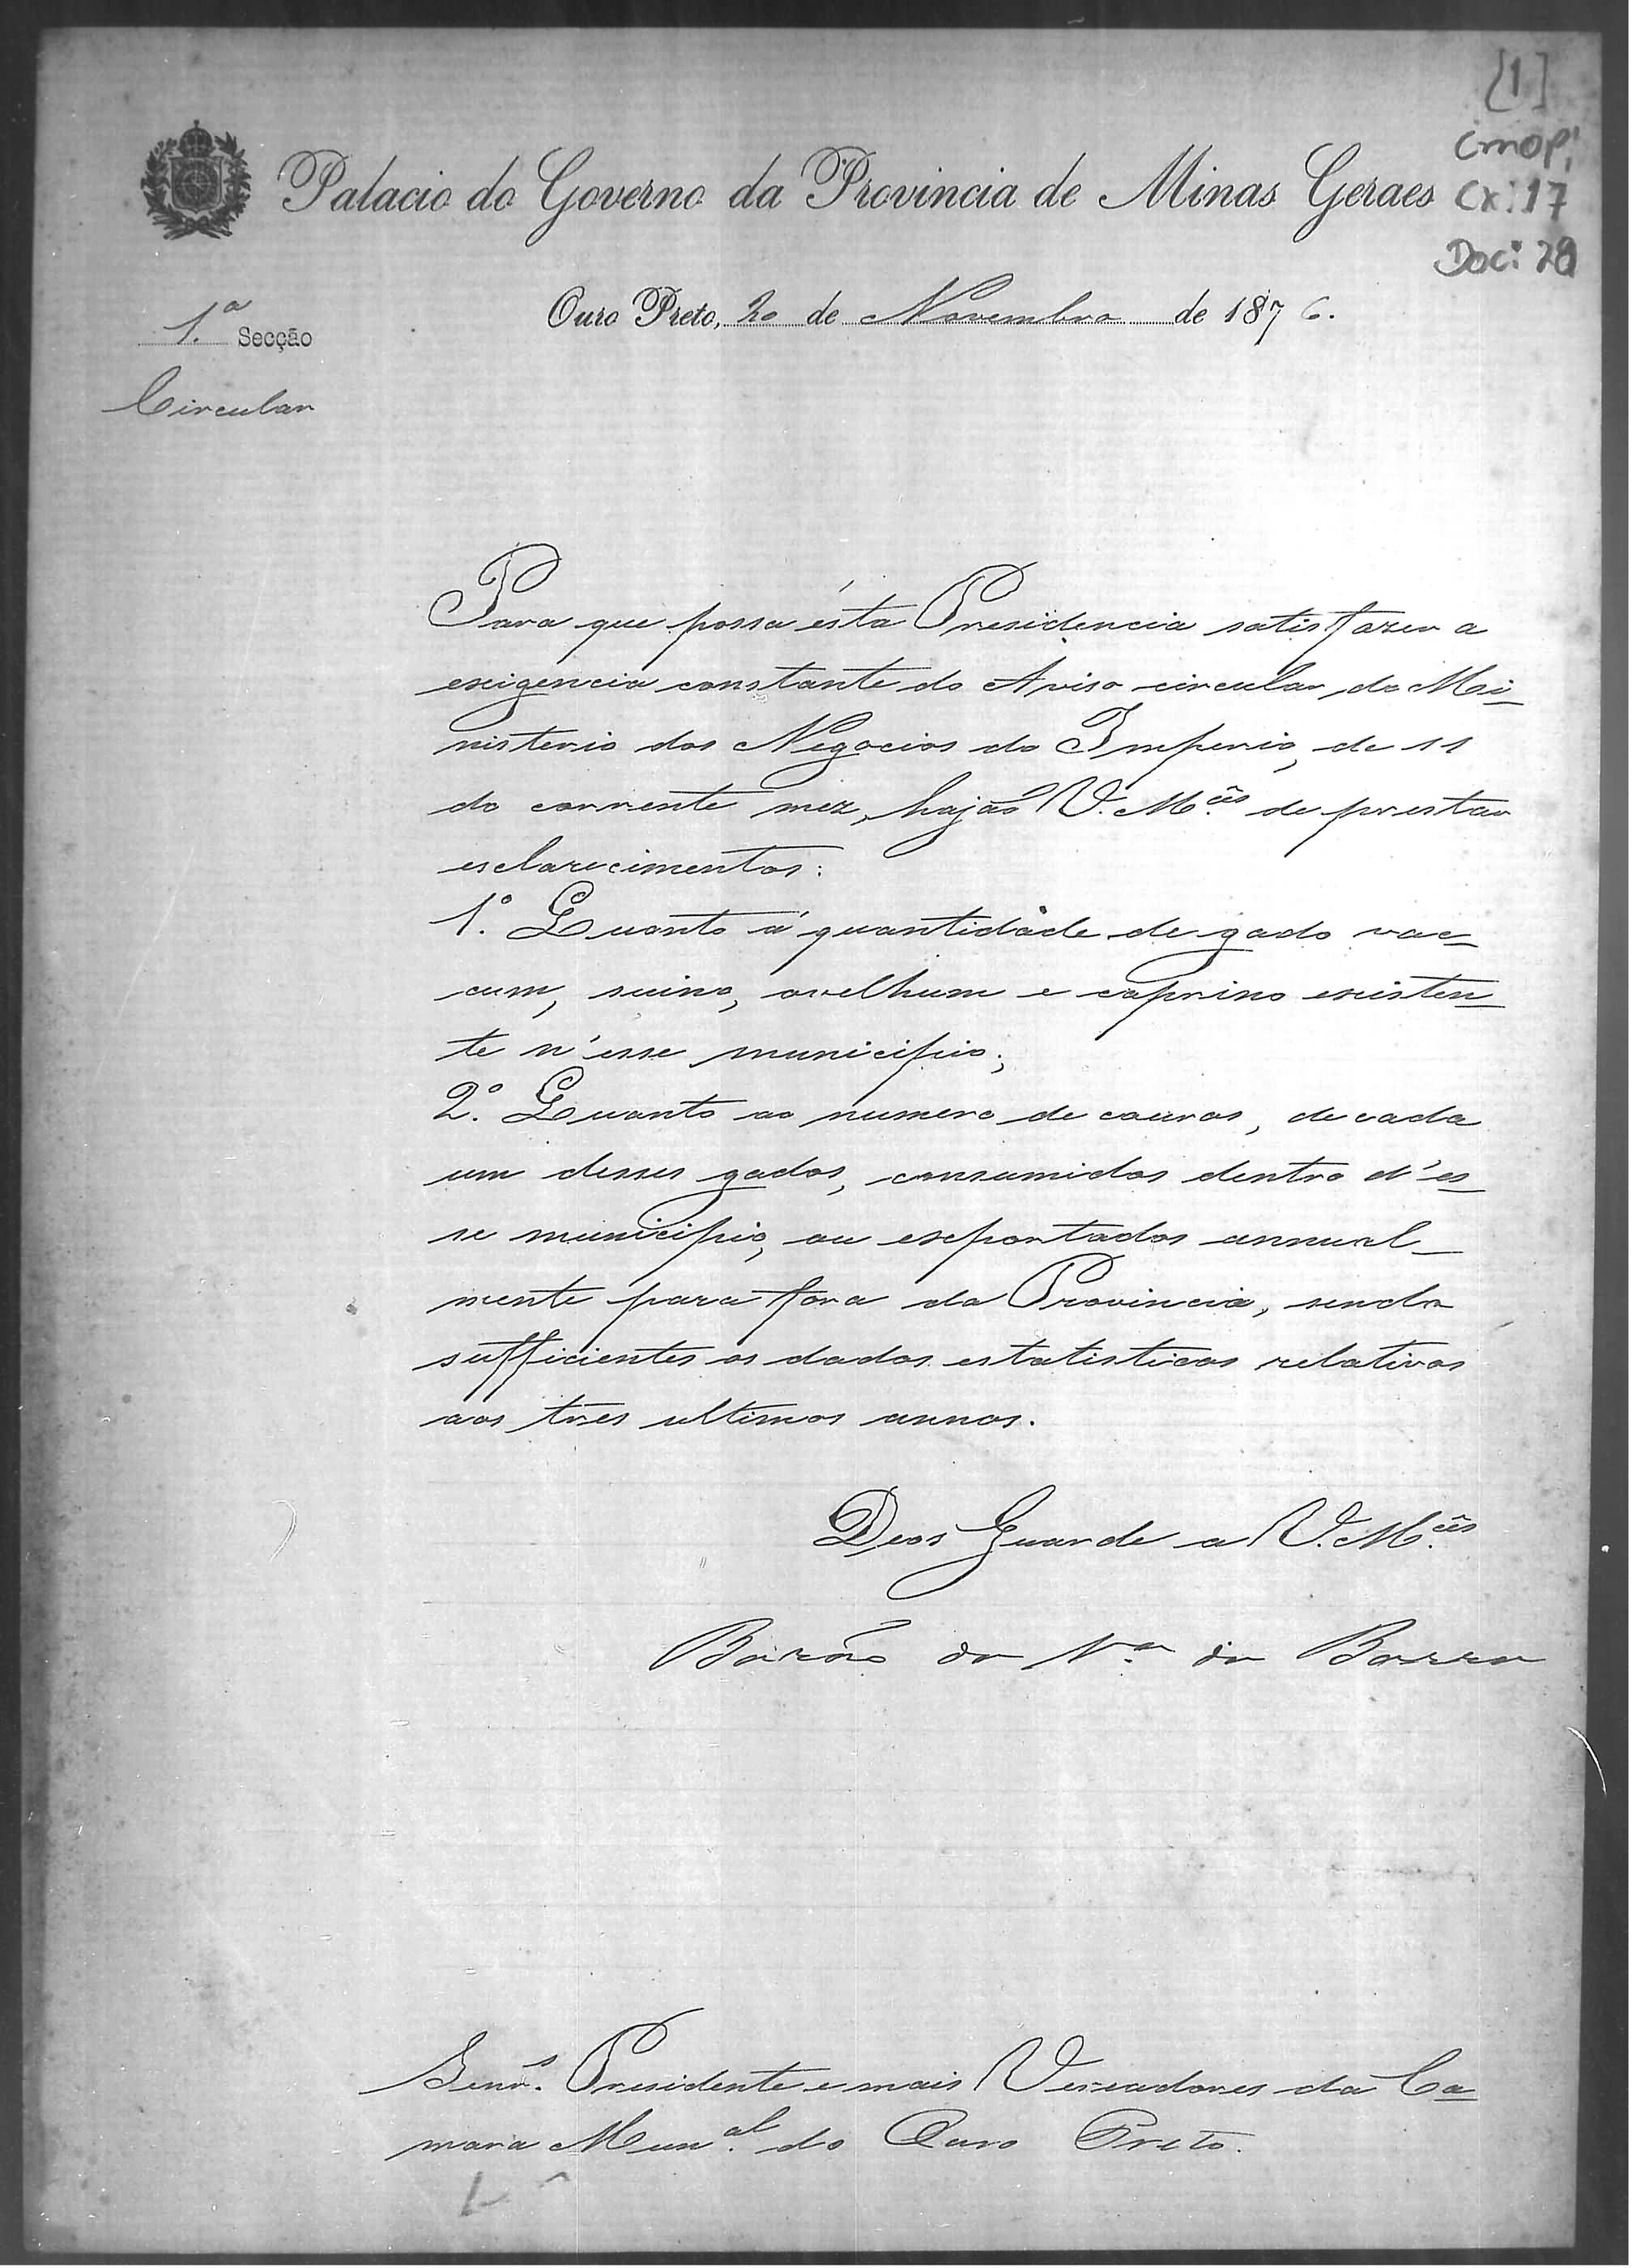 [1]
CMOP!
Cx: 17
Doc: 28
Palacio do Governo da Provincia de Minas Geraes
Ouro Preto, 20 de Novembro de 1876.
1.ª Secção
Circular
Para que possa ésta Presidencia satisfazer a
exigencia constante do Aviso circular do Mi-
nisterio dos Negocios do Imperio, de 11
do corrente mez, hajão V. M.cês de prestar
esclarecimentos:
1.º Quanto á quantidade de gado vac-
cum, suino, ovelhum e caprino existen-
te n'esse municipio;
2.º Quanto ao numero de couros, de cada
um desses gados, consumidos dentro d'es-
se municipio, ou exportados annual-
mente para fora da Provincia, sendo
sufficientes os dados estatisticos relativos
aos tres ultimos annos.
Deos Guarde a V. M.cês
Barão da V.ª da Barra
Senr.s Presidente e mais Vereadores da Ca-
mara Mun.al do Ouro Preto.